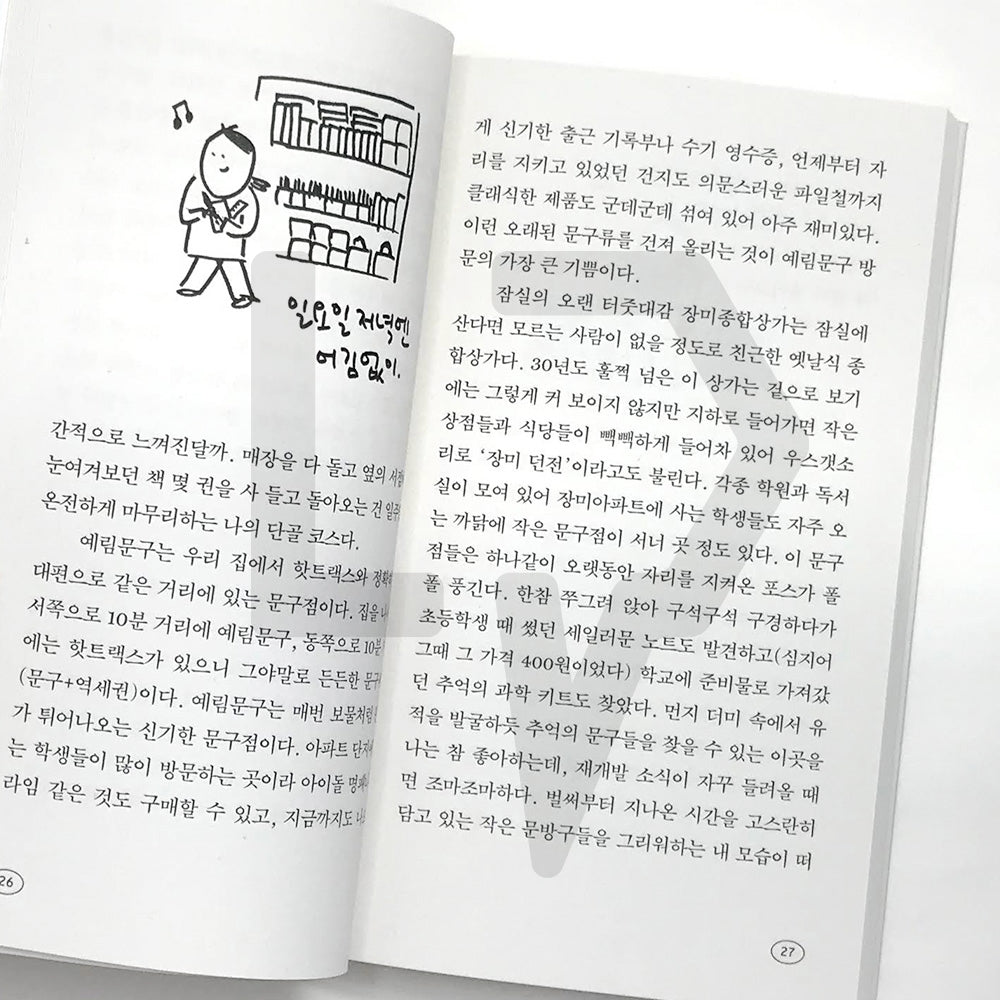 일요일 저녁엔
어김없이.
간적으로 느껴진달까. 매장을 다 돌고 옆의
눈여겨보던 책 몇 권을 사 들고 돌아오는 건
온전하게 마무리하는 나의 단골 코스다.
예림문구는 우리 집에서 핫트랙스와
대편으로 같은 거리에 있는 문구점이다. 집을
서쪽으로 10분 거리에 예림문구, 동쪽으로 10분
에는 핫트랙스가 있으니 그야말로 든든한
(문구+역세권)이다. 예림문구는 매번 보물처럼
가 튀어나오는 신기한 문구점이다. 아파트
는 학생들이 많이 방문하는 곳이라 아이돌
라임 같은 것도 구매할 수 있고, 지금까지도
26
게 신기한 출근 기록부나 수기 영수증, 언제부터 자
리를 지키고 있었던 건지도 의문스러운 파일철까지
클래식한 제품도 군데군데 섞여 있어 아주 재미있다.
이런 오래된 문구류를 건져 올리는 것이 예림문구 방
문의 가장 큰 기쁨이다.
잠실의 오랜 터줏대감 장미종합상가는 잠실에
산다면 모르는 사람이 없을 정도로 친근한 옛날식 종
합상가다. 30년도 훌쩍 넘은 이 상가는 겉으로 보기
에는 그렇게 커 보이지 않지만 지하로 들어가면 작은
상점들과 식당들이 빽빽하게 들어차 있어 우스갯소
리로 ‘장미 던전’이라고도 불린다. 각종 학원과 독서
실이 모여 있어 장미아파트에 사는 학생들도 자주 오
는 까닭에 작은 문구점이 서너 곳 정도 있다. 이 문구
점들은 하나같이 오랫동안 자리를 지켜온 포스가 폴
폴 풍긴다. 한참 쭈그려 앉아 구석구석 구경하다가
초등학생 때 썼던 세일러문 노트도 발견하고(심지어
그때 그 가격 400원이었다) 학교에 준비물로 가져갔
던 추억의 과학 키트도 찾았다. 먼지 더미 속에서 유
적을 발굴하듯 추억의 문구들을 찾을 수 있는 이곳을
나는 참 좋아하는데, 재개발 소식이 자꾸 들려올 때
면 조마조마하다. 벌써부터 지나온 시간을 고스란히
담고 있는 작은 문방구들을 그리워하는 내 모습이 떠
27